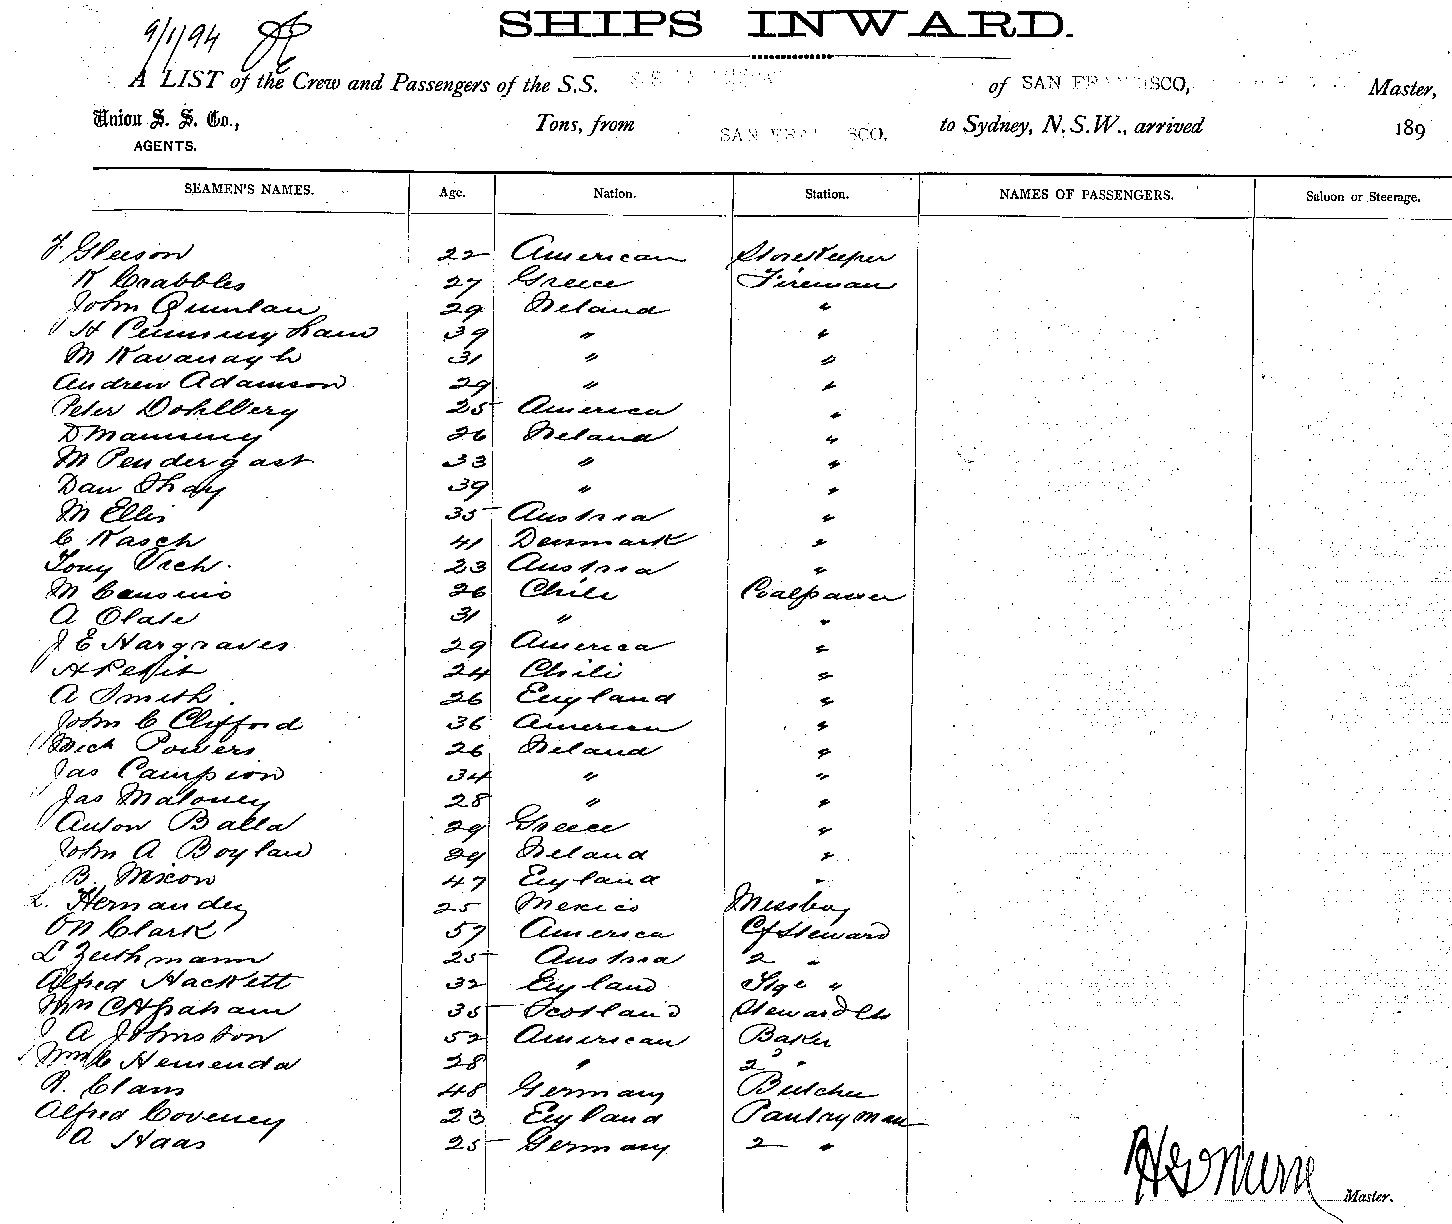 SHIPS INWARD.
9/1/94
A LIST of the Crew and Passengers of the S.S. of SAN FRANCISCO, Master,
Union S. S. Co., Tons, from SAN FRANCISCO. to Sydney, N.S.W., arrived 189
AGENTS.
SEAMEN'S NAMES. Age. Nation. Station. NAMES OF PASSENGERS. Saloon or Steerage.
J. Gleeson 22 American Storekeeper
K Crabbles 27 Greece Fireman
John Quinlan 29 Ireland "
H Cunningham 39 " "
M Kavanagh 31 " "
Andrew Adamson 29 " "
Peter Dohlberg 25 America "
D Manning 26 Ireland "
M Pendergast 33 " "
Dan Shay 39 " "
M Ellis 35 Austria "
C Rasch 41 Denmark "
Tony Vich. 23 Austria "
M Cansino 26 Chili Coalpasser
A Olate 31 " "
J E Hargraves 29 America "
A Petit 24 Chili "
A Smith. 26 England "
John C Clifford 36 American "
Mick Powers 26 Ireland "
Jas Campion 34 " "
Jas Maloney 28 " "
Anton Balla 29 Greece "
John A Boylan 29 Ireland "
B. Nixon 47 England "
L. Hernandez 25 Mexico Messboy
Clark 57 America Cf Steward
L Zeithmann 25 Austria 2 "
Alfred Hackett 32 England Stge "
Graham 35 Scotland Stewardess
J A Johnston 52 American Baker
Wm C Hemenda 28 " 2 "
R. Clans 48 Germany Butcher
Alfred Coveney 23 England Pantryman
A Haas 25 Germany 2 "
Master.